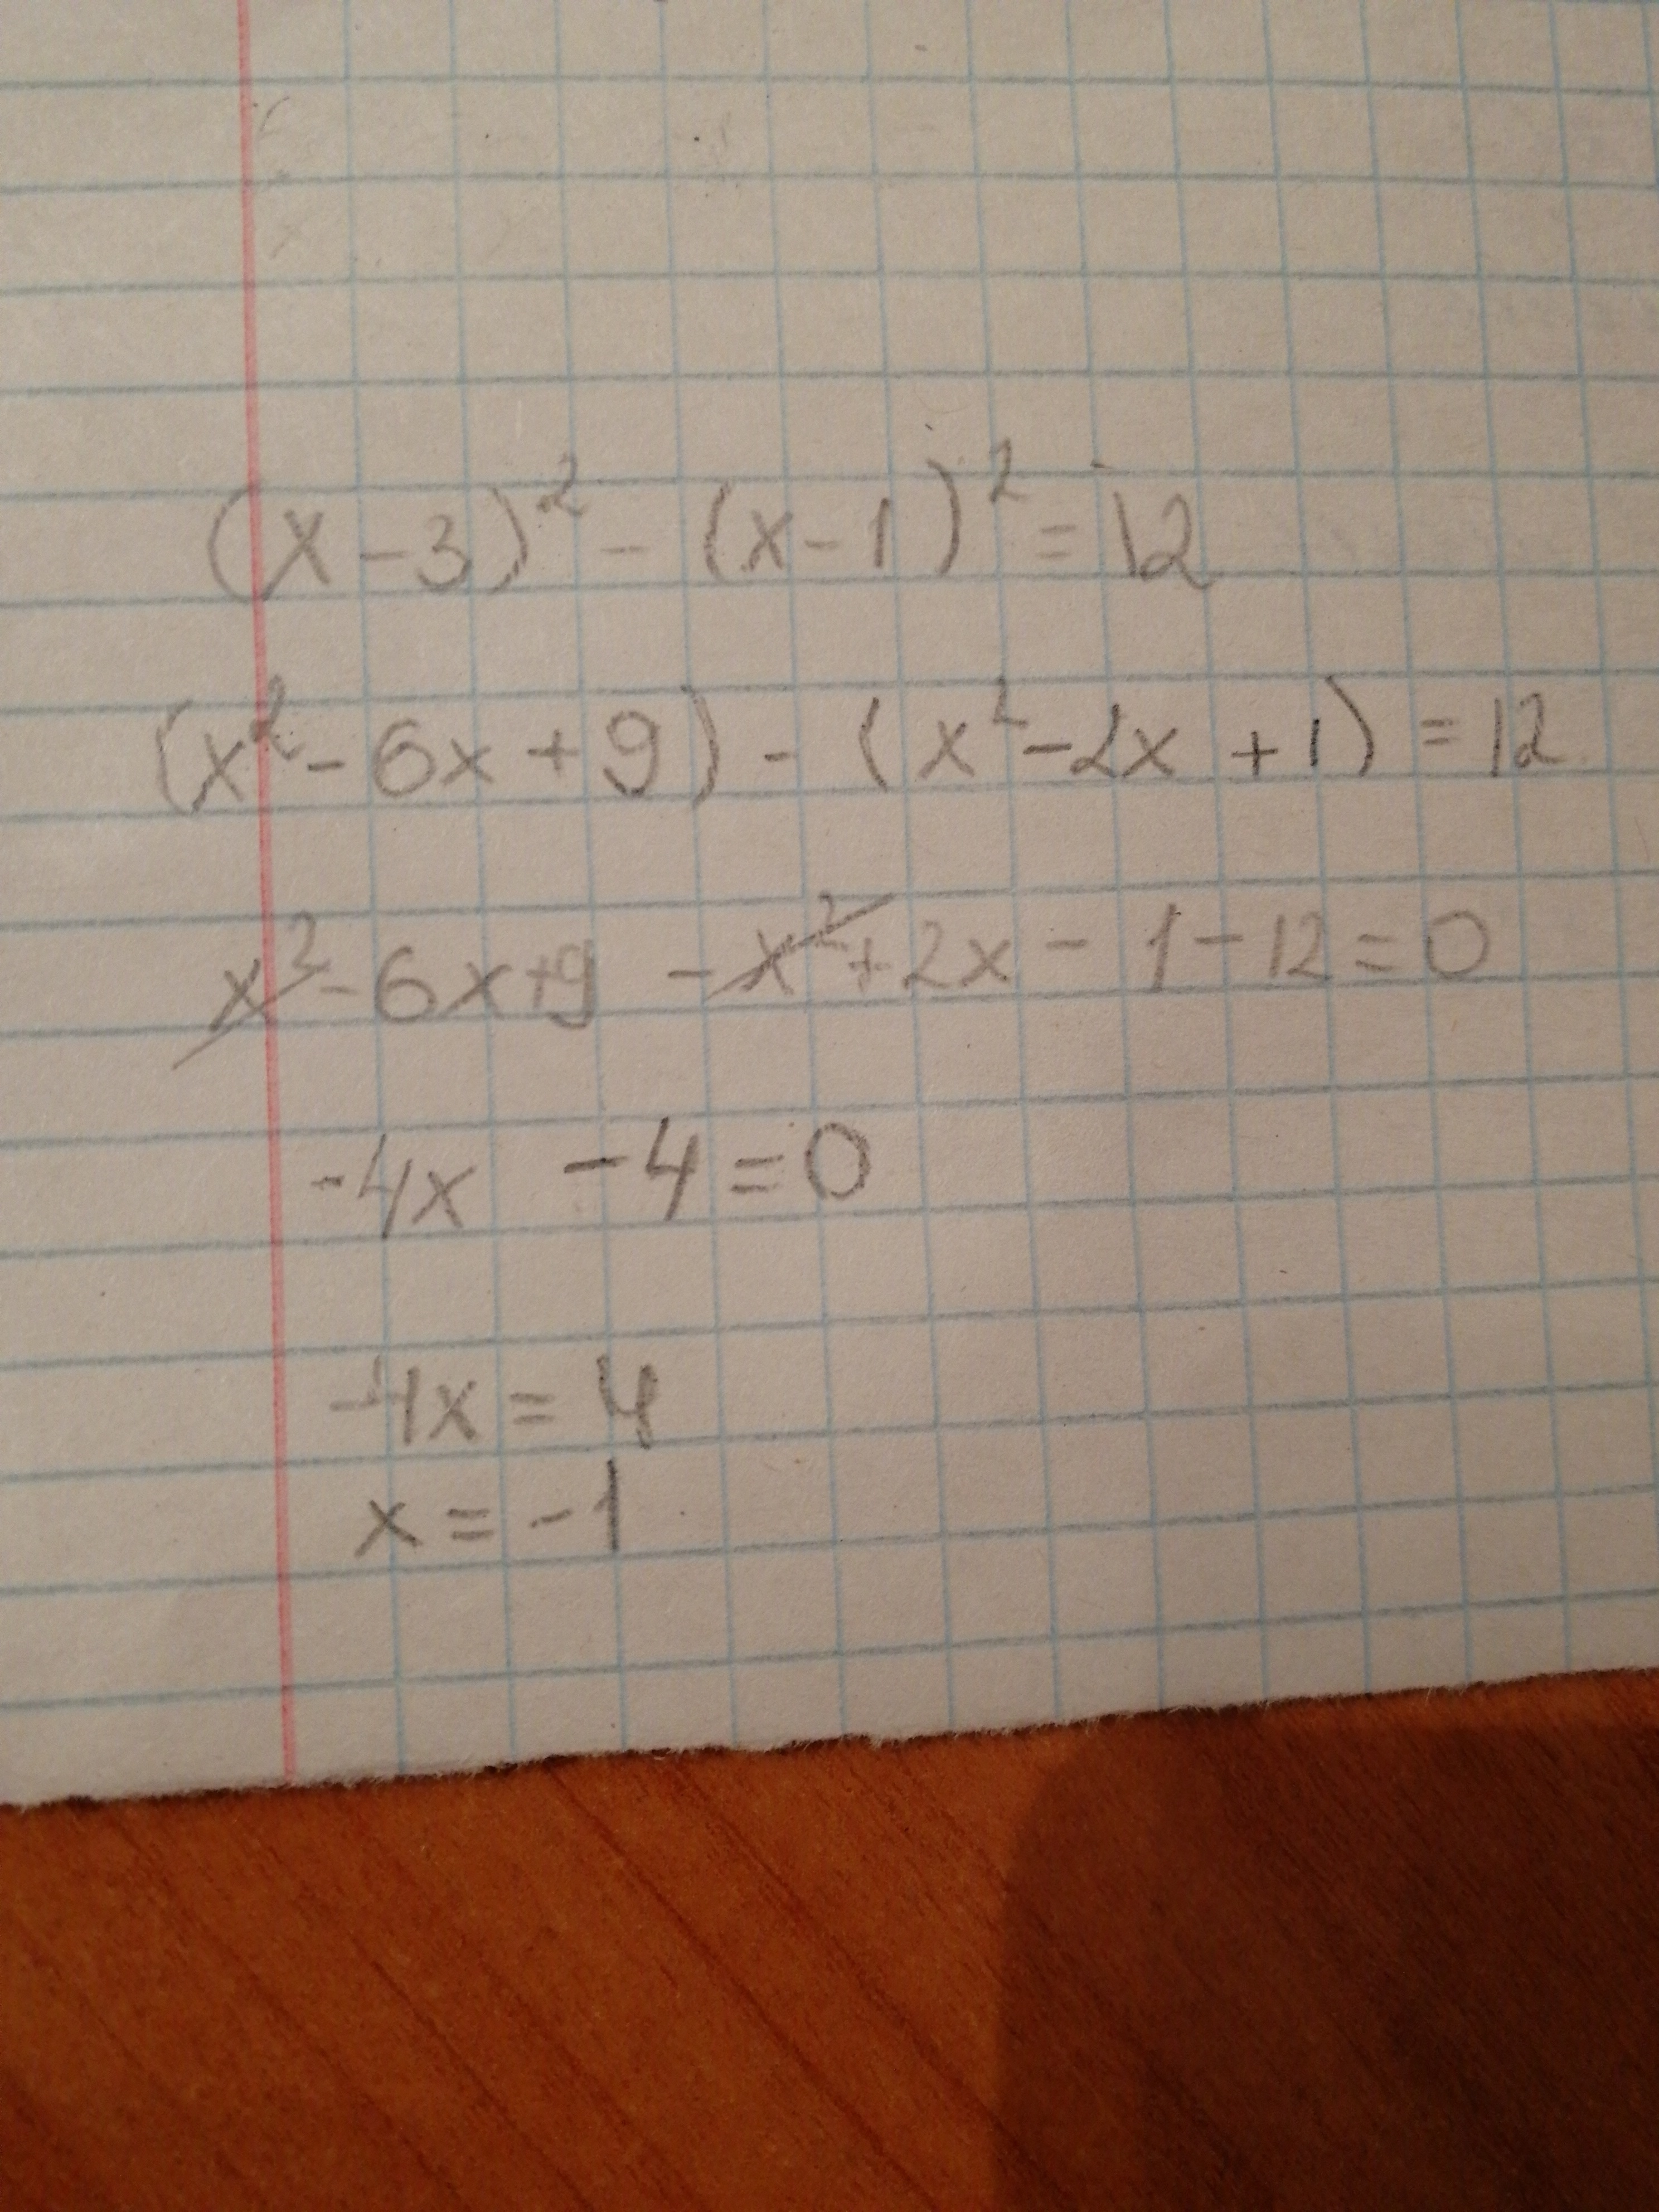 (x-3)² - (x-1)² = 12
(x²-6x+9) - (x²-2x+1) = 12
x²-6x+9 -x²+2x-1-12=0
-4x -4=0
-4x=4
x=-1